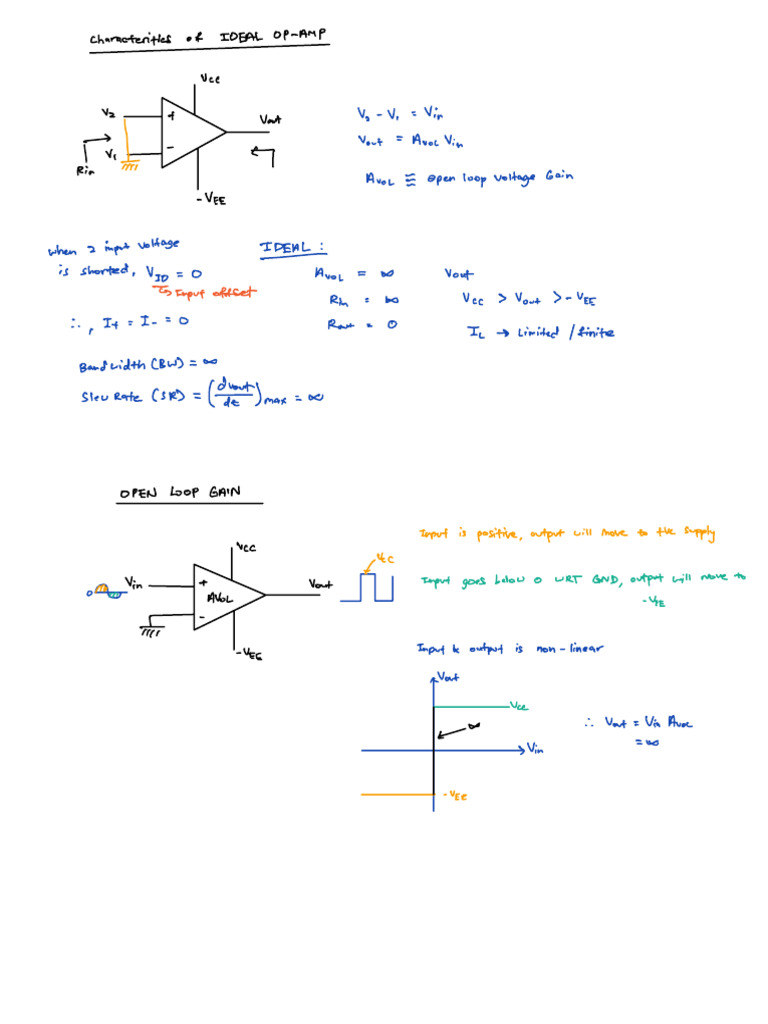 Characteristics of IDEAL OP-AMP
Vcc
V2
+
Vout
V1
-
Rin
-VEE
V2 - V1 = Vin
Vout = AVOL Vin
AVOL ≡ open loop voltage Gain
when 2 input voltage
is shorted, VID = 0
↳ Input offset
∴, I+ = I- = 0
IDEAL :
AVOL = ∞
Rin = ∞
Rout = 0
Vout
Vcc > Vout > -VEE
IL → Limited / finite
Bandwidth (BW) = ∞
Slew Rate (SR) = (dvout/dt)max = ∞
OPEN LOOP GAIN
Vcc
Vin
+
AVOL
Vout
0
-
-VEE
Vcc
Input is positive, output will move to the supply
Input goes below 0 WRT GND, output will move to
-VEE
Input & output is non-linear
Vout
Vcc
∞
Vin
-VEE
∴ Vout = Vin AVOL
= ∞